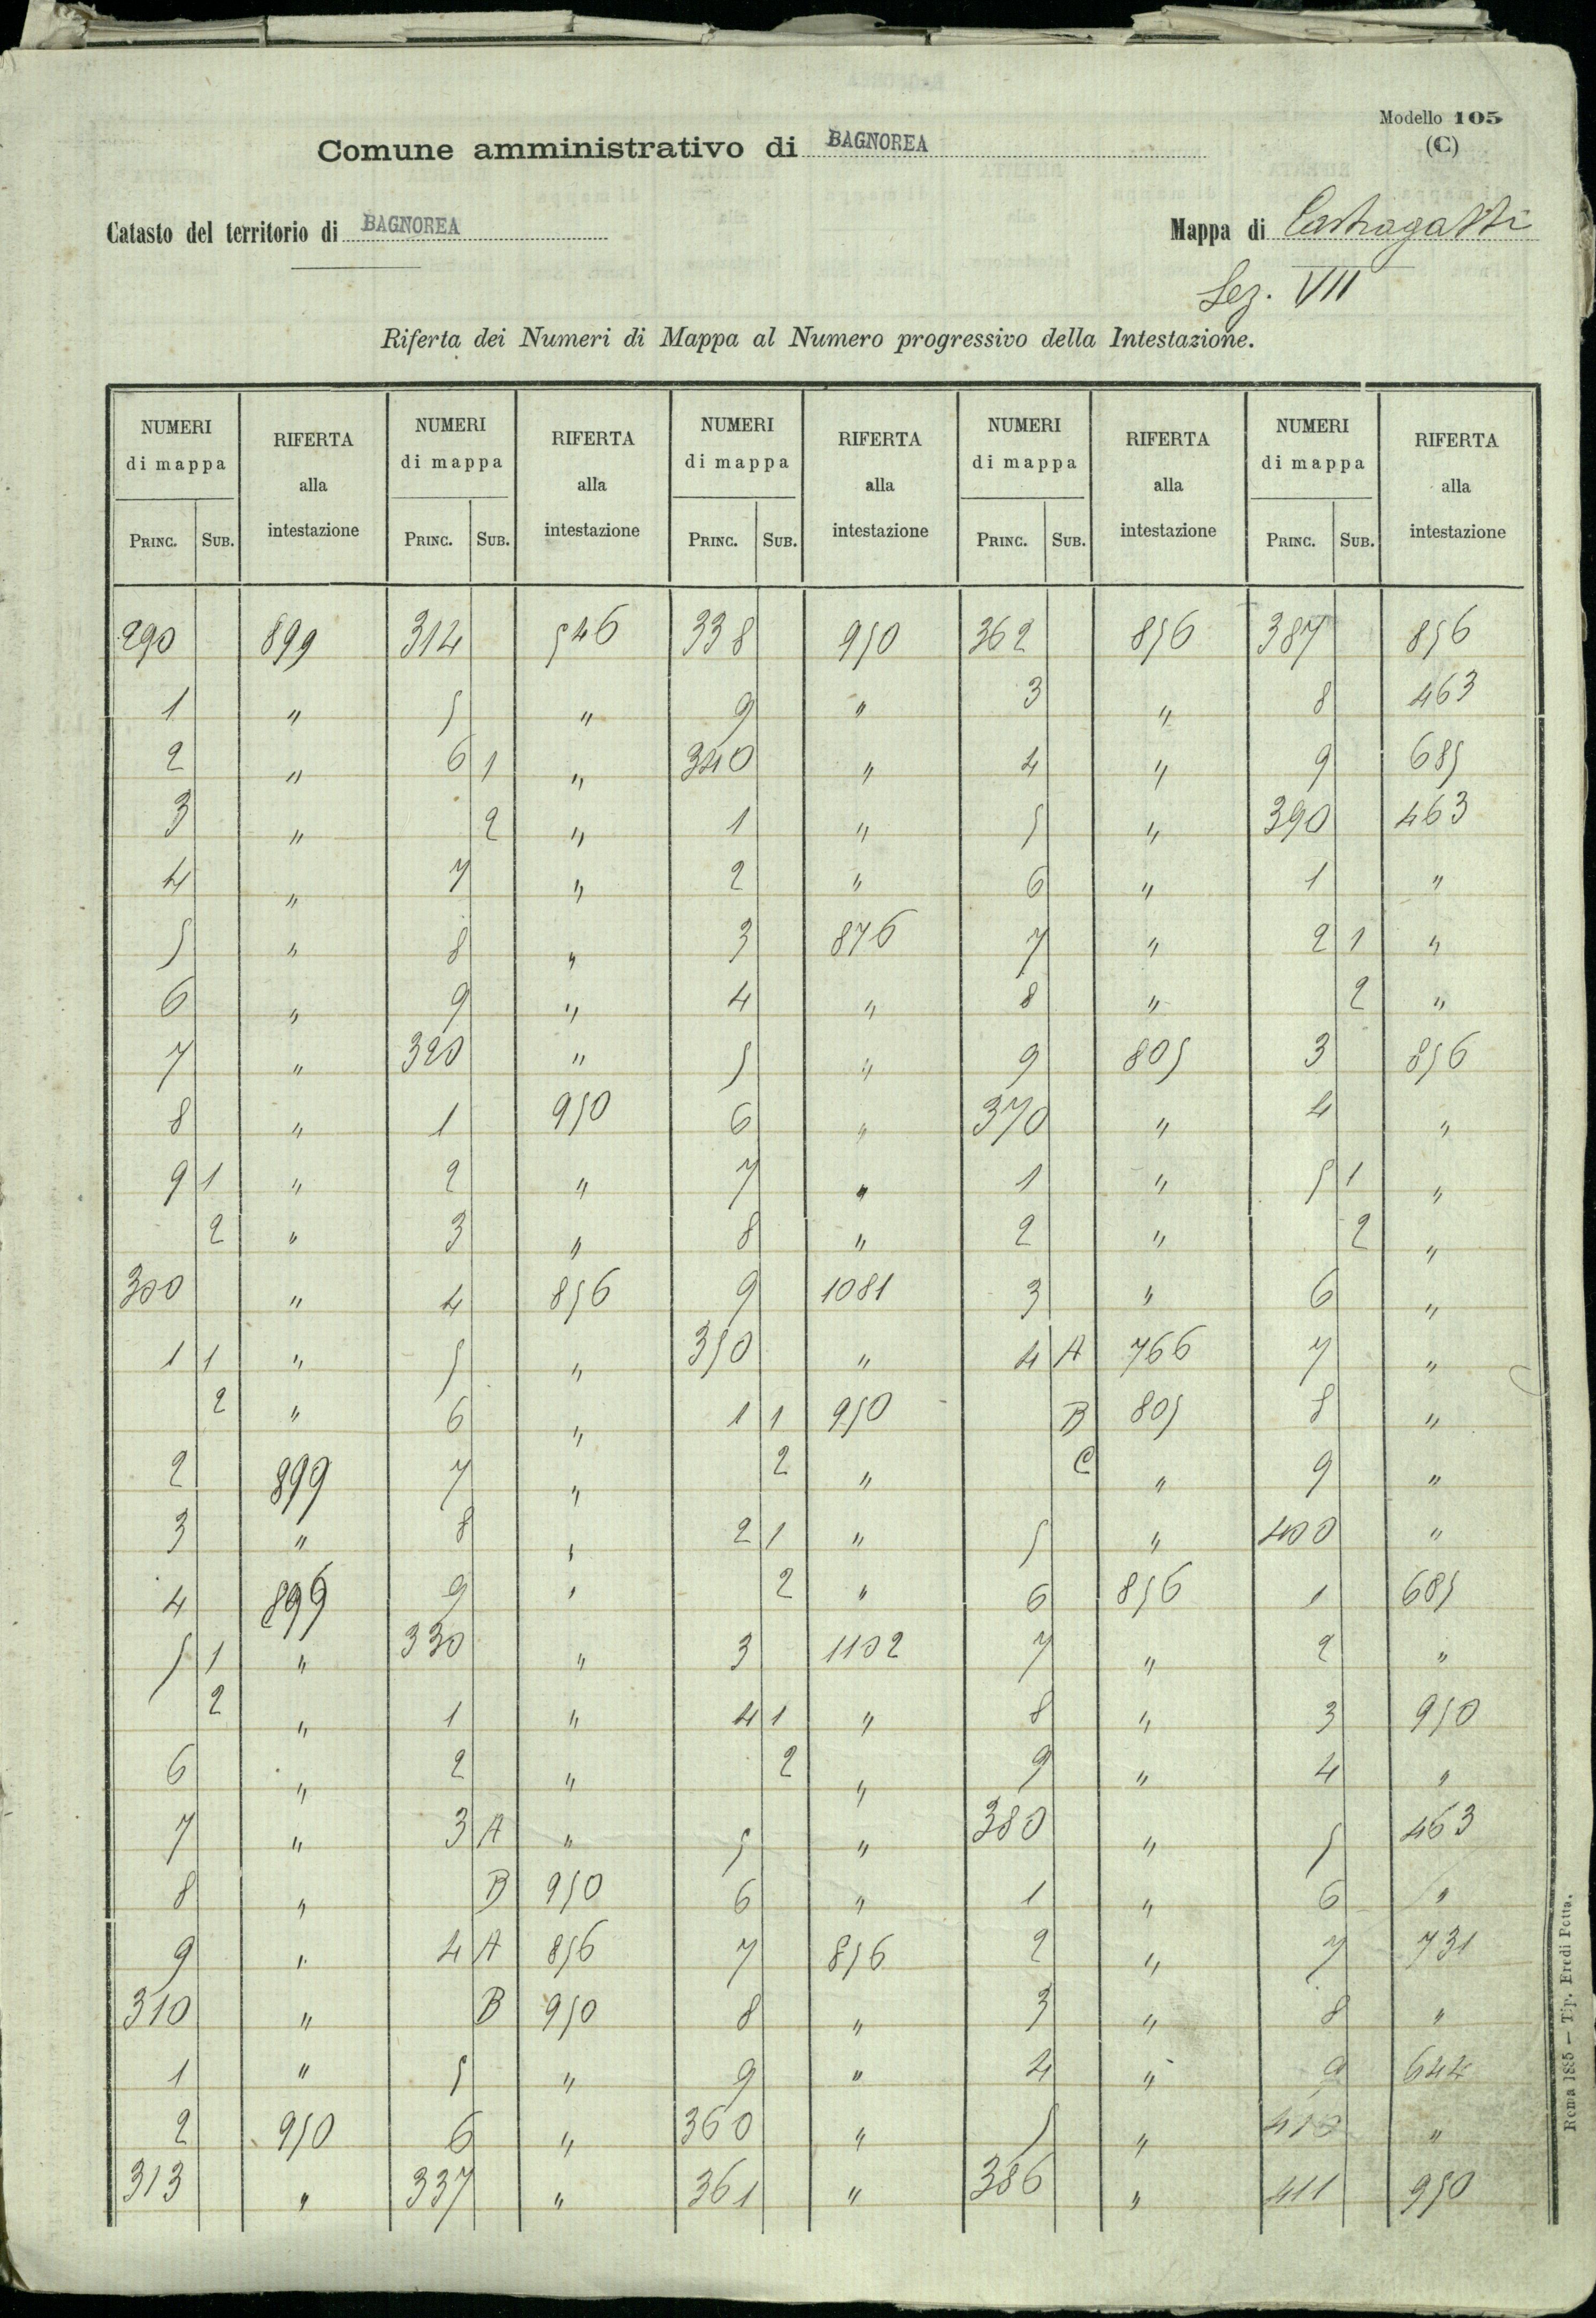 Modello 105
(C)
Comune amministrativo di BAGNOREA
Catasto del territorio di BAGNOREA Mappa di Castragatti
Sez. VII
Riferta dei Numeri di Mappa al Numero progressivo della Intestazione.
NUMERI di mappa RIFERTA alla intestazione NUMERI di mappa RIFERTA alla intestazione NUMERI di mappa RIFERTA alla intestazione NUMERI di mappa RIFERTA alla intestazione NUMERI di mappa RIFERTA alla intestazione
PRINC. SUB. PRINC. SUB. PRINC. SUB. PRINC. SUB. PRINC. SUB.
290 899 314 546 338 950 362 856 387 856
1 " 5 " 9 " 3 " 8 463
2 " 6 1 " 340 " 4 " 9 685
3 " 2 " 1 " 5 " 390 463
4 " 7 " 2 " 6 " 1 "
5 " 8 " 3 876 7 " 2 1 "
6 " 9 " 4 " 8 " 2 "
7 " 320 " 5 " 9 805 3 856
8 " 1 950 6 " 370 " 4 "
9 1 " 2 " 7 " 1 " 5 1 "
2 " 3 " 8 " 2 " 2 "
300 " 4 856 9 1081 3 " 6 "
1 1 " 5 " 350 " 4 A 766 7 "
2 " 6 " 1 1 950 B 805 8 "
2 899 7 " 2 " C " 9 "
3 " 8 " 2 1 " 5 " 400 "
4 899 9 " 2 " 6 856 1 685
5 1 " 330 " 3 1102 7 " 2 "
2 " 1 " 4 1 " 8 " 3 950
6 " 2 " 2 " 9 " 4 "
7 " 3 A " 5 " 380 " 5 463
8 " B 950 6 " 1 " 6 "
9 " 4 A 856 7 856 2 " 7 731
310 " B 950 8 " 3 " 8 "
1 " 5 " 9 " 4 " 9 644
2 950 6 " 360 " 5 " 410 "
313 " 337 " 361 " 386 " 411 950
Roma 1885 — Tip. Eredi Botta.